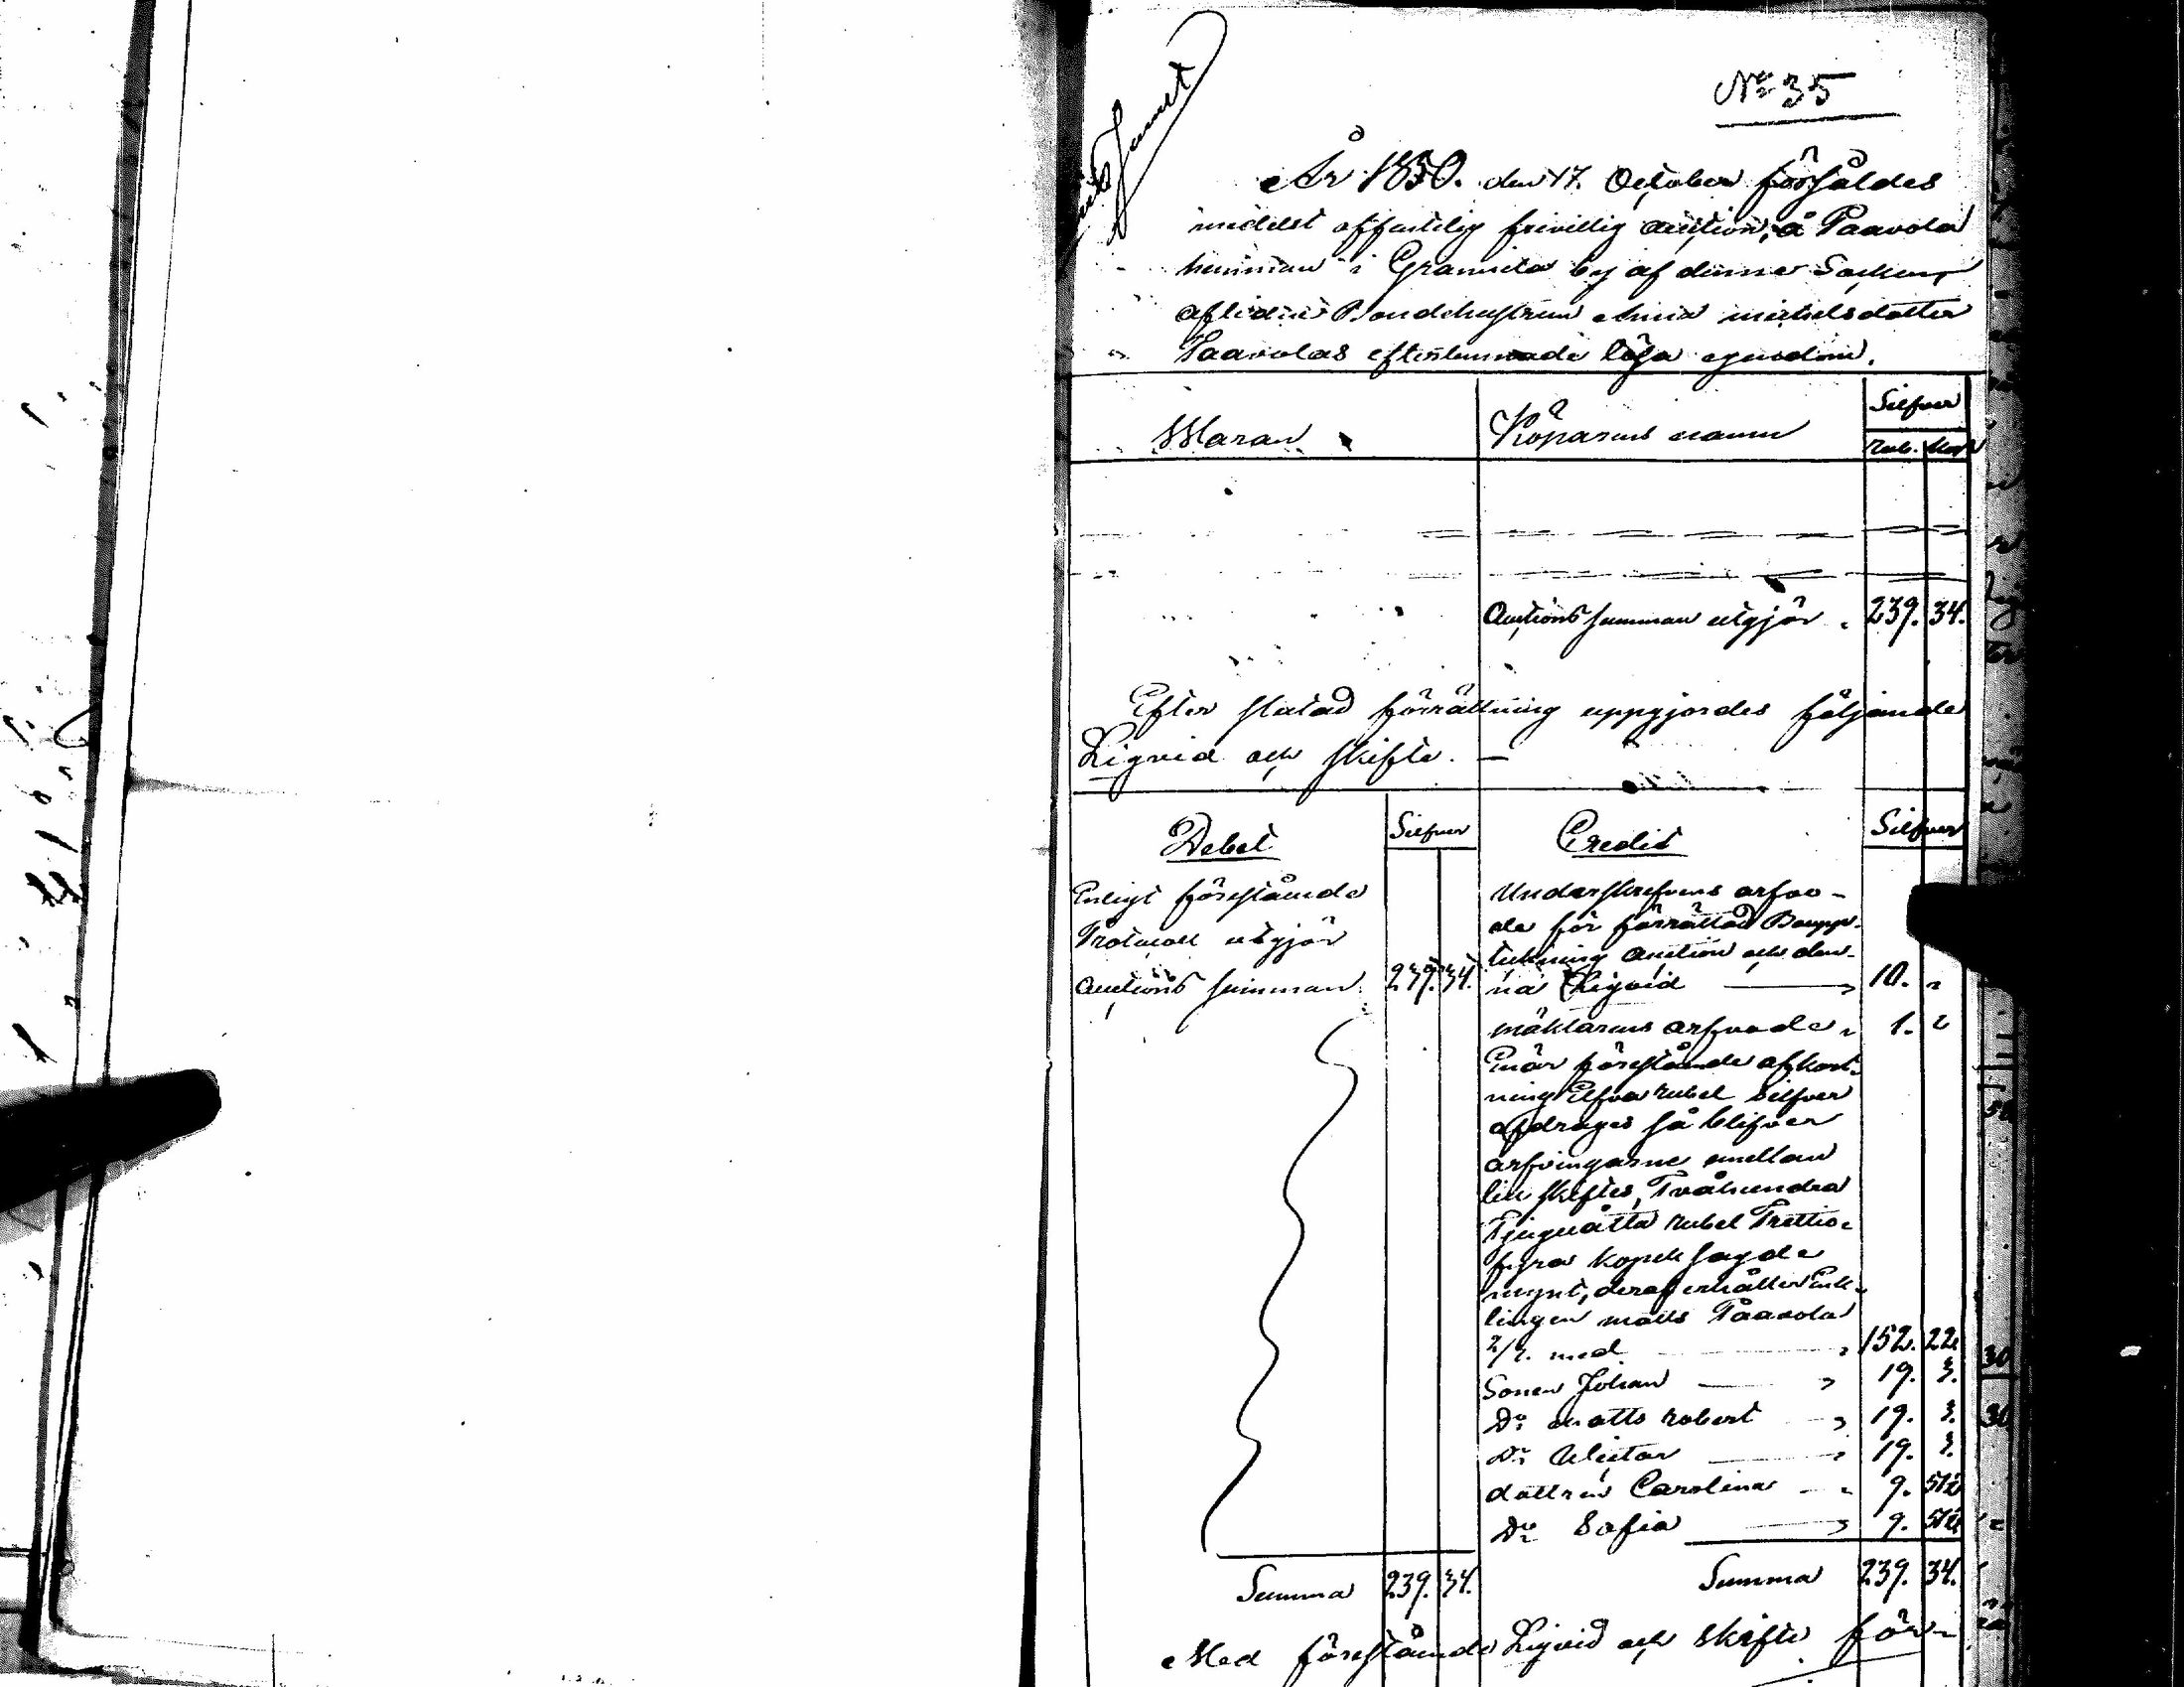 No 35
År 1850. den 17. October försåldes
medelst offentelig frivillig auction, å Paavola
hemman i Grannila by af denne Socken,
aflidne Bondehustrun Anna michelsdotter
Paavolas efterlemnade lösa egendom.
Waran Köparens namn Silfver
Rub. Kop
Auctions summan utgjör 239. 34.
Efter slutad förrättning uppgjordes följande
Liqvid och skifte. —
Debet Silfver Credit Silfver
Enligt förestående
Protocoll utgjör
auctions summan 239. 34.
Underskrefvens arfvo-
de för förrättad Boupp-
tekning auction och den-
na Liqvid 10. "
mäklarens arfvode " 1. "
Enär förestående afkort-
ning Elfva rubel Silfver
afdrages så blifver
arfvingarne emellan
till skiftes, Tvåhundra
Tjuguåtta rubel Trettio-
fyra kopek sagde
mynt, deraf erhåller Enk-
lingen matts Paavola
2/3. med 152. 22.
Sonen Johan 19. 3.
Do matts robert 19. 3.
Do Victor 19. 3.
dottren Carolina 9. 51½
Do Sofia 9. 51½
Summa 239. 34. Summa 239. 34.
Med förestående Liqvid och skifte för-